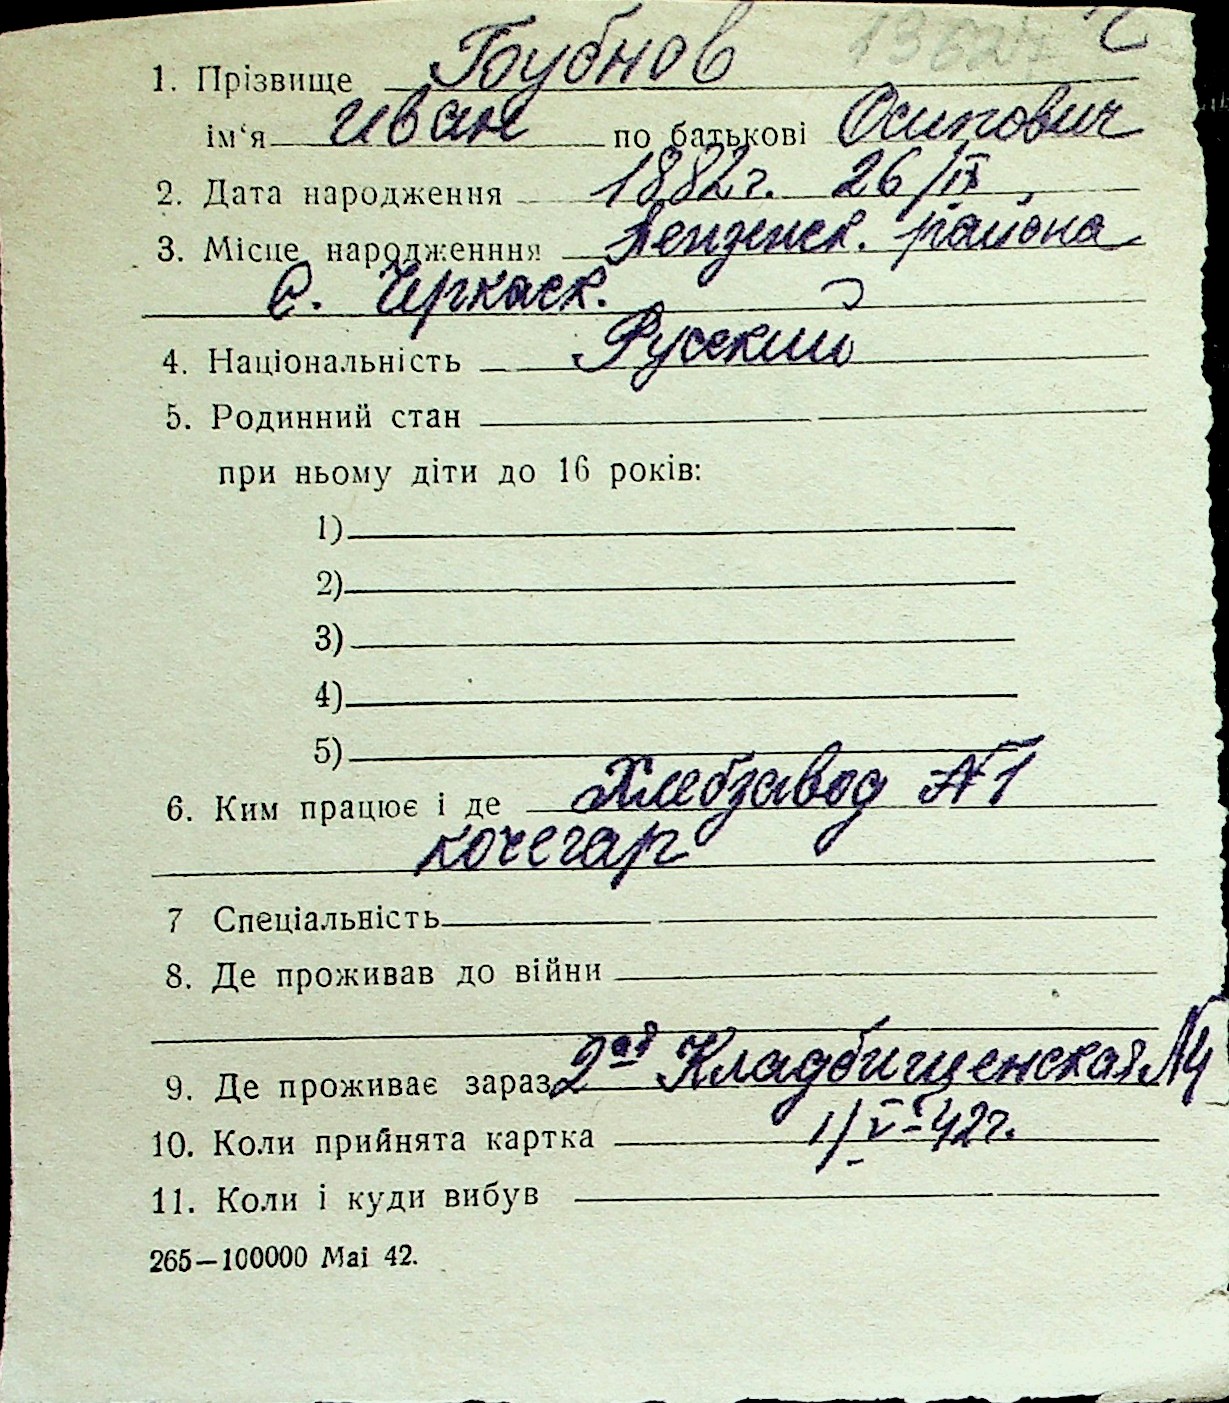 1. Прізвище Бубнов
ім‘я Иван по батькові Осипович
2. Дата народження 1882 г. 26/IX
3. Місце народженння района
с. Черкаск.
4. Національність Русский
5. Родинний стан
при ньому діти до 16 років:
1)
2)
3)
4)
5)
6. Ким працює і де Хлебзавод №1
кочегар
7 Спеціальність
8. Де проживав до війни
9. Де проживає зараз 2ая Кладбищенская №4
10. Коли прийнята картка 1/V-42г.
11. Коли і куди вибув
265—100000 Mai 42.